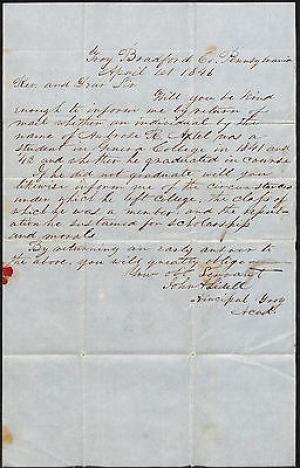 Troy Bradford Co. Pennsylvania
April 1st 1846
Rev. and Dear Sir
Will you be kind
enough to inform me by return of
mail whether an individual by the
name of Ambrose R. Axtel was a
student in Geneva College in 1841 and
'43 and whether he graduated in course
If he did not graduate, will you
likewise inform me of the circumstances
under which he left College, the class of
which he was a member, and the reput-
ation he sustained for scholarship
and morals.
By returning an early answer to
the above, you will greatly oblige
Your Obt. Servant
John
Principal Troy
Acad.